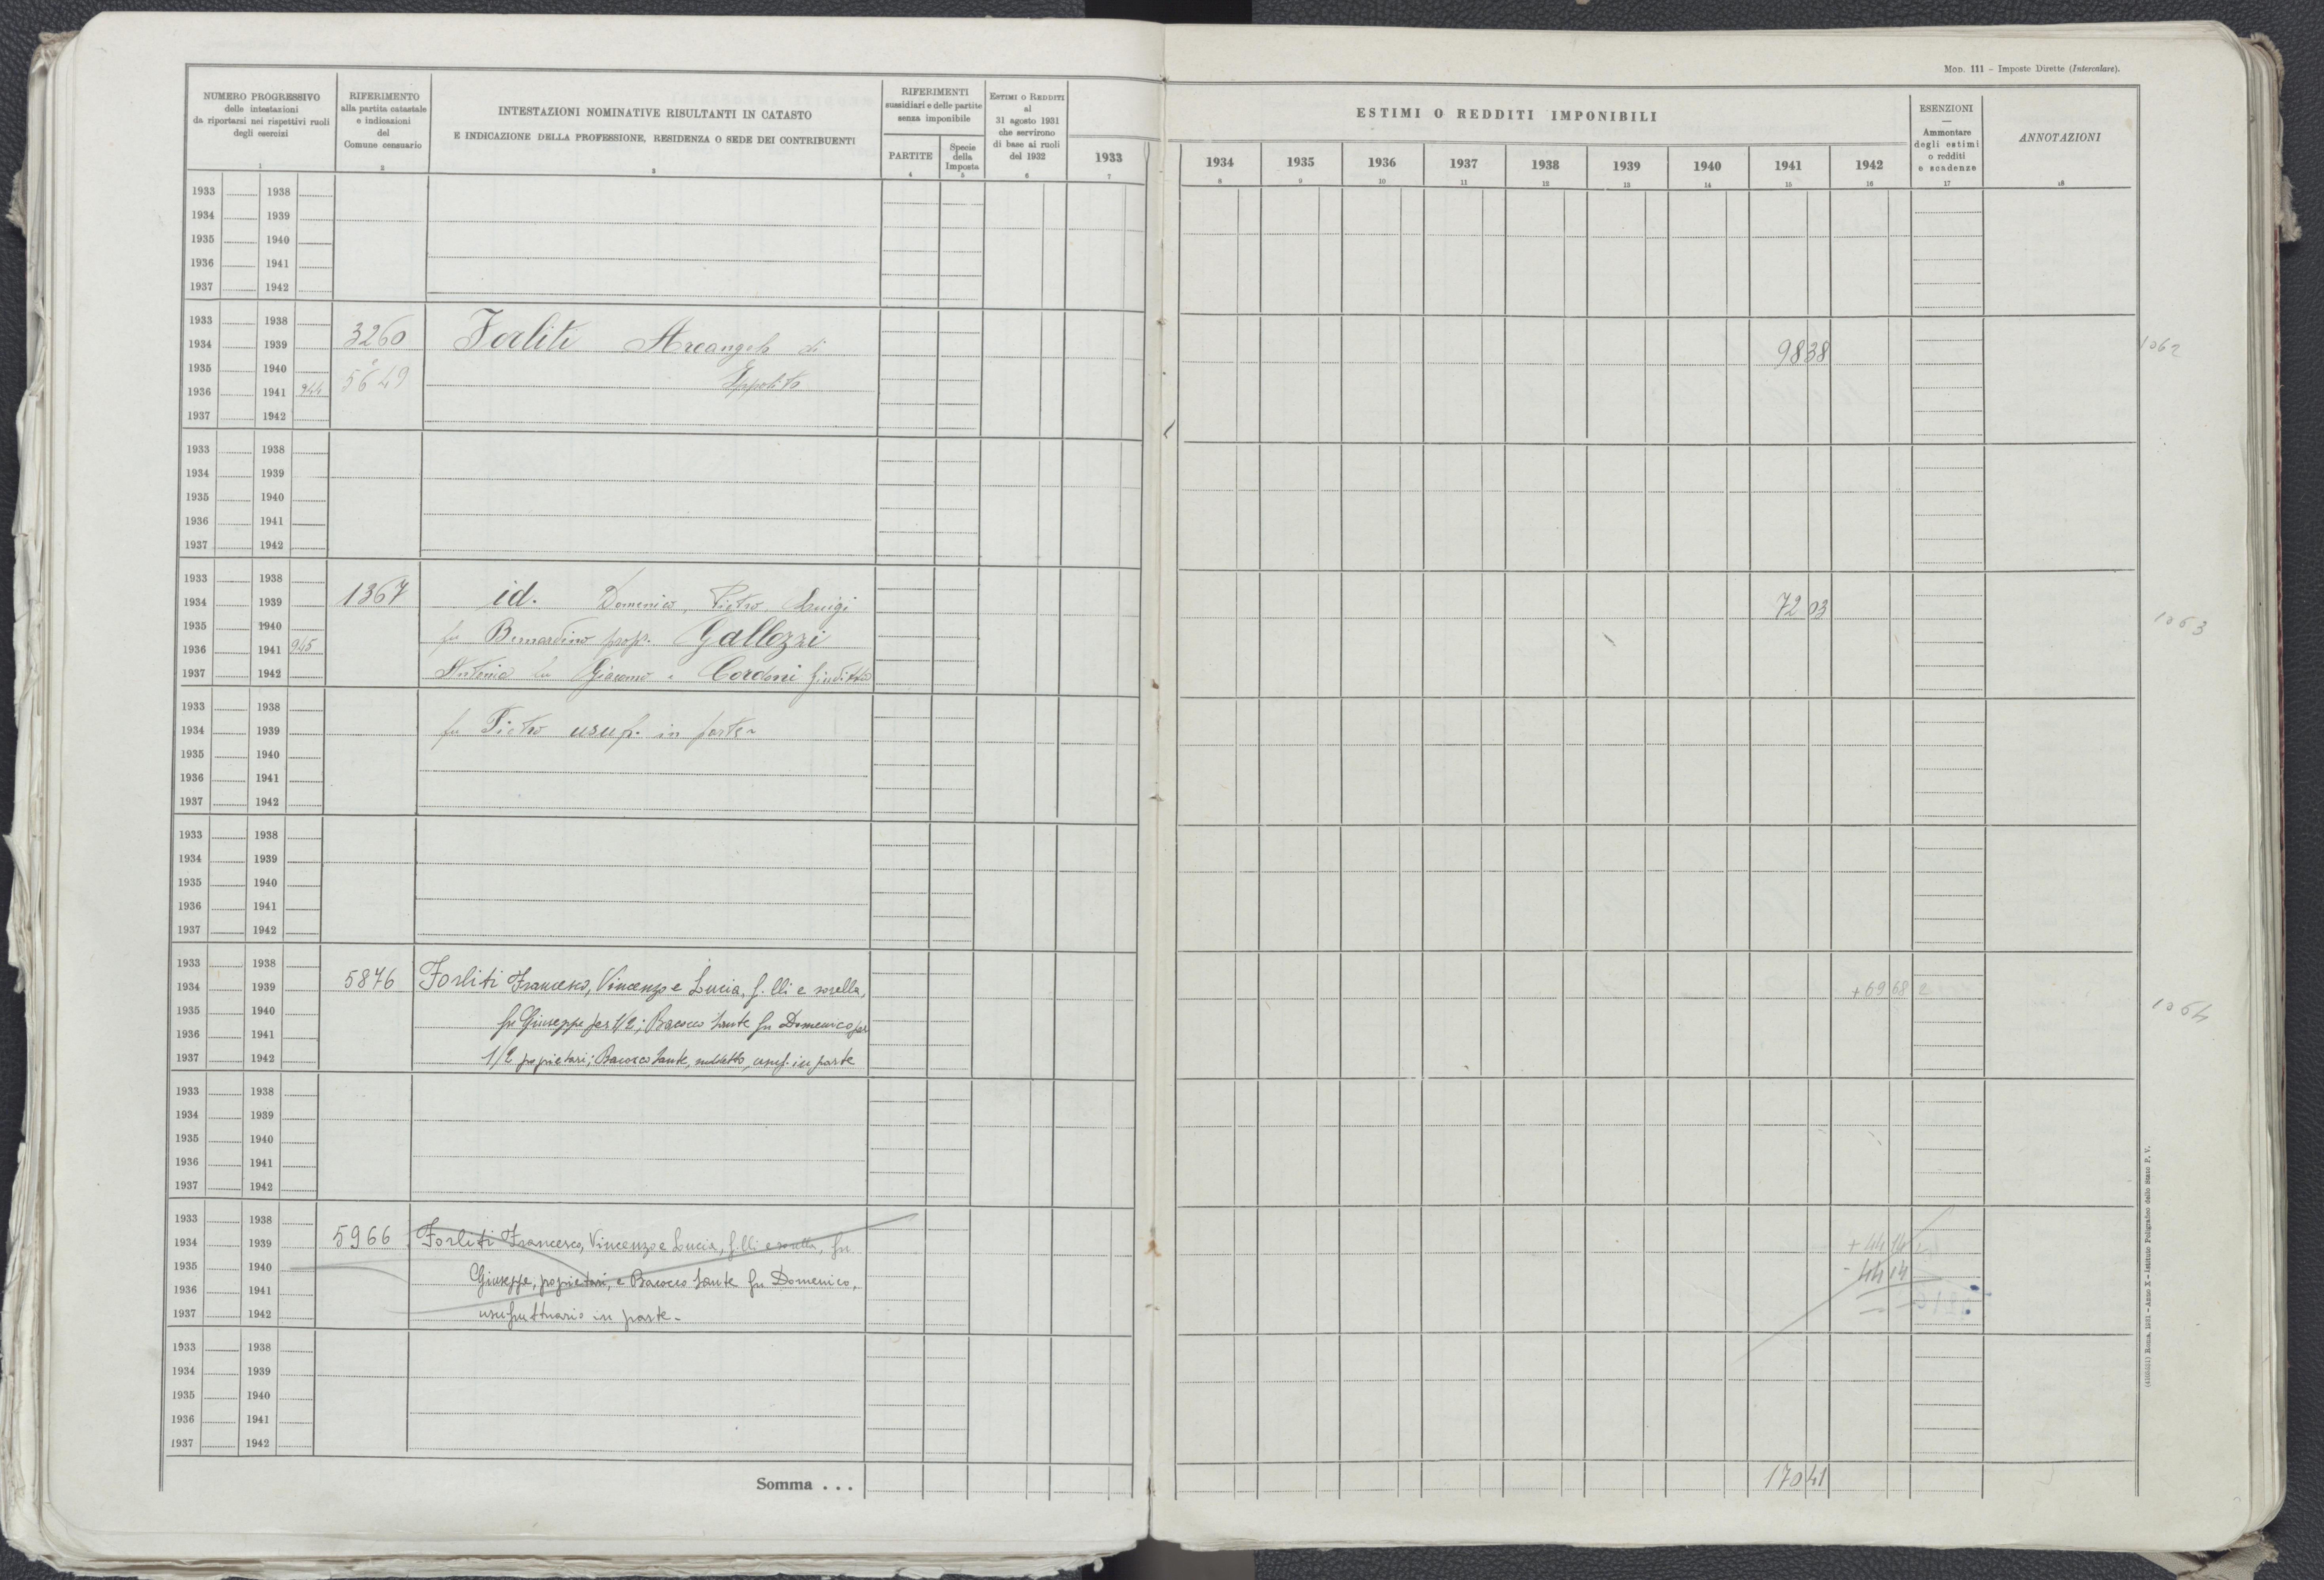 MOD. 111 – Imposte Dirette (Intercalare).
NUMERO PROGRESSIVO
delle intestazioni
da riportarsi nei rispettivi ruoli
degli esercizi
1
RIFERIMENTO
alla partita catastale
e indicazioni
del
Comune censuario
2
INTESTAZIONI NOMINATIVE RISULTANTI IN CATASTO
E INDICAZIONE DELLA PROFESSIONE, RESIDENZA O SEDE DEI CONTRIBUENTI
3
RIFERIMENTI
sussidiari e delle partite
senza imponibile
PARTITE
4
Specie
della
Imposta
5
ESTIMI O REDDITI
al
31 agosto 1931
che servirono
di base ai ruoli
del 1932
6
1933
7
ESTIMI O REDDITI IMPONIBILI
1934 1935 1936 1937 1938 1939 1940 1941 1942
8 9 10 11 12 13 14 15 16
ESENZIONI
Ammontare
degli estimi
o redditi
e scadenze
17
ANNOTAZIONI
18
1933 1938
1934 1939
1935 1940
1936 1941
1937 1942
1933 1938
1934 1939 3260 Forliti Arcangelo di 98 38 1062
1935 1940 5649 Ippolito
1936 1941 944
1937 1942
1933 1938
1934 1939
1935 1940
1936 1941
1937 1942
1933 1938
1934 1939 1367 id. Domenico, Pietro, Luigi 72 03 1063
1935 1940 fu Bernardino propr. Gallozzi
1936 1941 945
1937 1942 Antonia fu Giacomo e Cordoni Giuditta
1933 1938
1934 1939 fu Pietro usuf. in parte
1935 1940
1936 1941
1937 1942
1933 1938
1934 1939
1935 1940
1936 1941
1937 1942
1933 1938
1934 1939 5876 Forliti Francesco, Vincenzo e Lucia, f.lli e sorella, +69 68 2 1064
1935 1940 fu Giuseppe per 1/2; Bacocco Sante fu Domenico per
1936 1941
1937 1942 1/2 proprietari; Bacocco Sante, suddetto, usuf. in parte
1933 1938
1934 1939
1935 1940
1936 1941
1937 1942
1933 1938
1934 1939 5966 Forliti Francesco, Vincenzo e Lucia, f.lli e sorella, fu + 44 14
1935 1940 Giuseppe, proprietari, e Bacocco Sante fu Domenico, - 44 14
1936 1941
1937 1942 usufruttuario in parte.
1933 1938
1934 1939
1935 1940
1936 1941
1937 1942
Somma . . . 170 41
(4105551) Roma, 1931 - Anno X - Istituto Poligrafico dello Stato P. V.